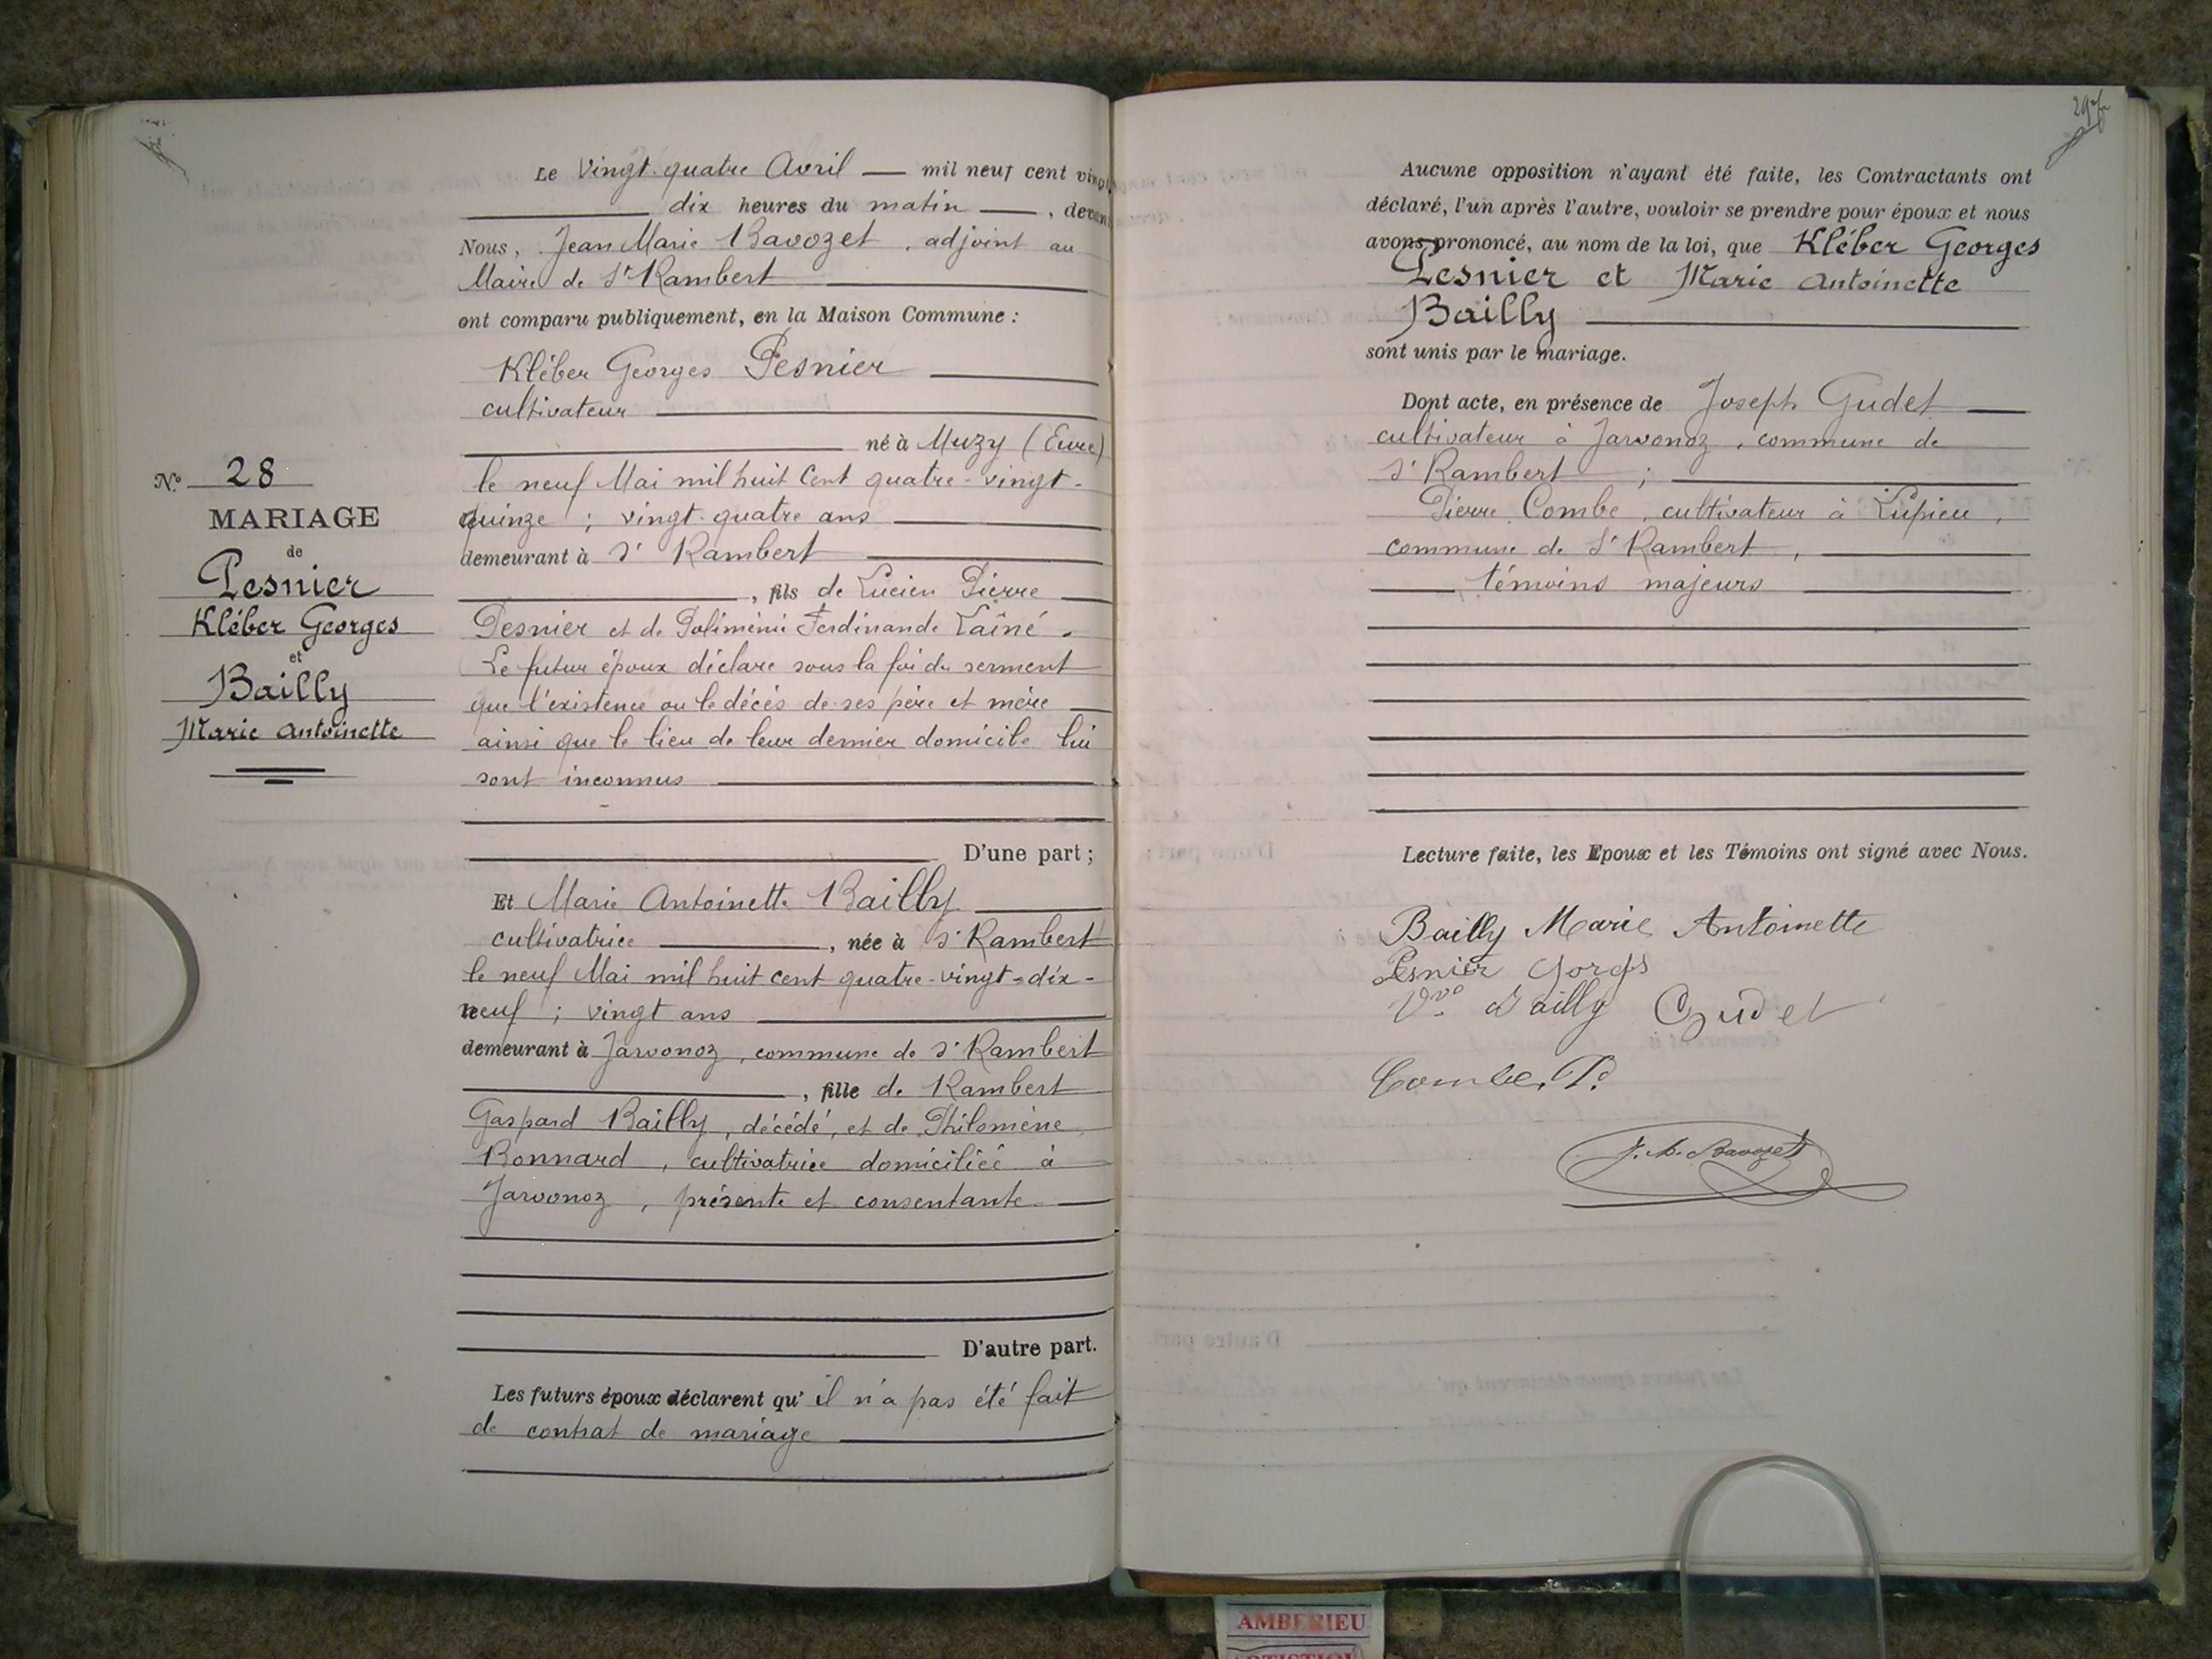 Le Vingt-quatre Avril — mil neuf cent vingt
dix heures du matin —, devant
Nous, Jean Marie Bavozet, adjoint au
Maire de St Rambert
ont comparu publiquement, en la Maison Commune :
Kléber Georges Pesnier
cultivateur
né à Muzy (Eure)
le neuf Mai mil huit cent quatre-vingt-
quinze ; vingt-quatre ans
demeurant à St Rambert
, fils de Lucien Pierre
Pesnier et de Ferdinande Laîné.
Le futur époux déclare sous la foi du serment
que l'existence ou le décès de ses père et mère
ainsi que le lieu de leur dernier domicile lui
sont inconnus
D'une part ;
Et Marie Antoinette Bailly
cultivatrice, née à St Rambert
le neuf Mai mil huit cent quatre-vingt-dix-
neuf ; vingt ans
demeurant à Javornoz, commune de St Rambert
, fille de Rambert
Gaspard Bailly, décédé, et de Philomène
Bonnard, cultivatrice domiciliée à
Javornoz, présente et consentante
D'autre part.
Les futurs époux déclarent qu'il n'a pas été fait
de contrat de mariage
No 28
MARIAGE
de
Pesnier
Kléber Georges
et
Bailly
Marie Antoinette
Aucune opposition n'ayant été faite, les Contractants ont
déclaré, l'un après l'autre, vouloir se prendre pour époux et nous
avons prononcé, au nom de la loi, que Kléber Georges
Pesnier et Marie Antoinette
Bailly
sont unis par le mariage.
Dont acte, en présence de Joseph Gudet
cultivateur à Javornoz, commune de
St Rambert ;
Pierre Combe, cultivateur à Lupieu,
commune de St Rambert,
témoins majeurs
Lecture faite, les Epoux et les Témoins ont signé avec Nous.
Bailly Marie Antoinette
Pesnier Gorgs
Vve Bailly Gudet
Combe. P.
J. M. Bavozet
AMBERIEU